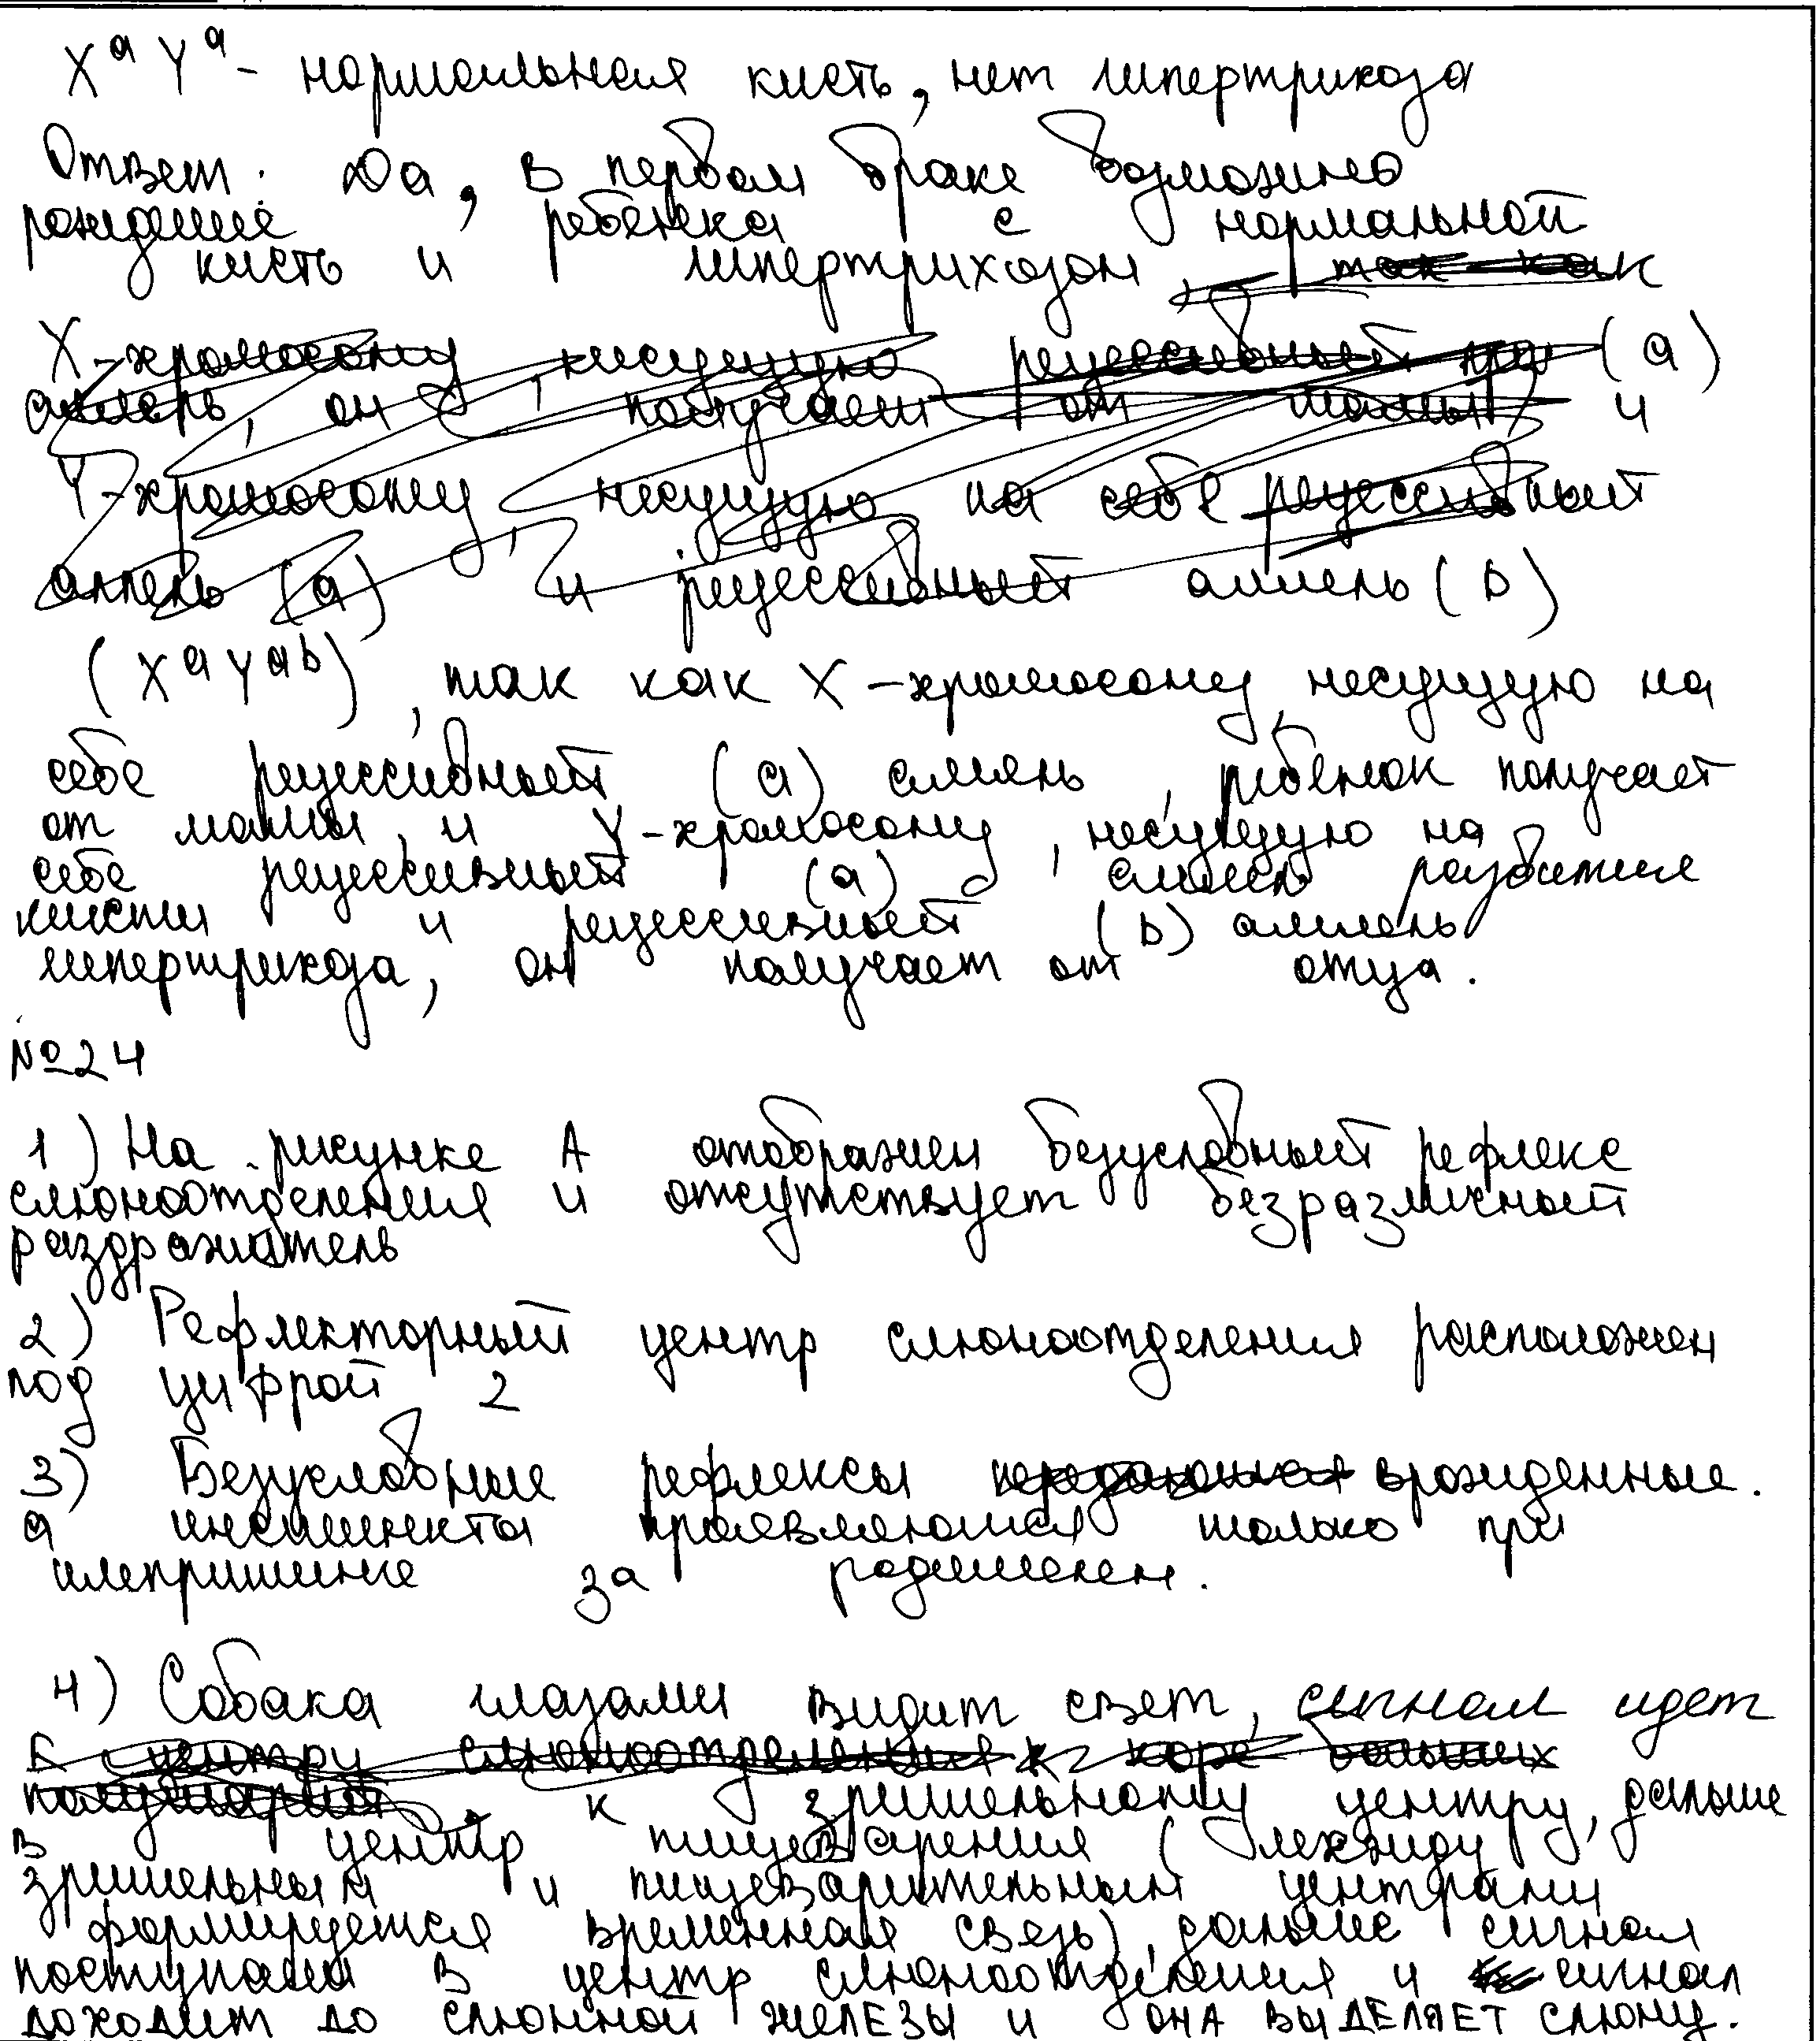 X^a Y^a - нормальная кисть, нет гипертрихоза
Ответ: Да, в первом браке возможно
рождение ребёнка с нормальной
кисть и гипертрихозом, так как
X-хромосому, несущую рецессивный (a)
аллель, он получает от мамы и
Y-хромосому, несущую на себе рецессивный
аллель (a) и рецессивный аллель (b)
(X^a Y^ab), так как X-хромосому, несущую на
себе рецессивный (a) аллель, ребёнок получает
от мамы, и Y-хромосому, несущую на
себе рецессивный (a) аллель развития
кисти и рецессивный (b) аллель
гипертрихоза, он получает от отца.
№24
1) На рисунке А отображен безусловный рефлекс
слюноотделения и отсутствует безразличный
раздражитель
2) Рефлекторный центр слюноотделения расположен
под цифрой 2
3) Безусловные рефлексы передаются врожденные.
а инстинкты проявляются только при
за
4) Собака глазами видит свет, сигнал идет
к центру слюноотделения к коре больших
полушарий, к зрительному центру, дальше
в центр пищеварения (между
зрительным и пищеварительным центрами
формируется временная связь), дальше сигнал
поступает в центр слюноотделения и сигнал
доходит до слюнной железы и она выделяет слюну.